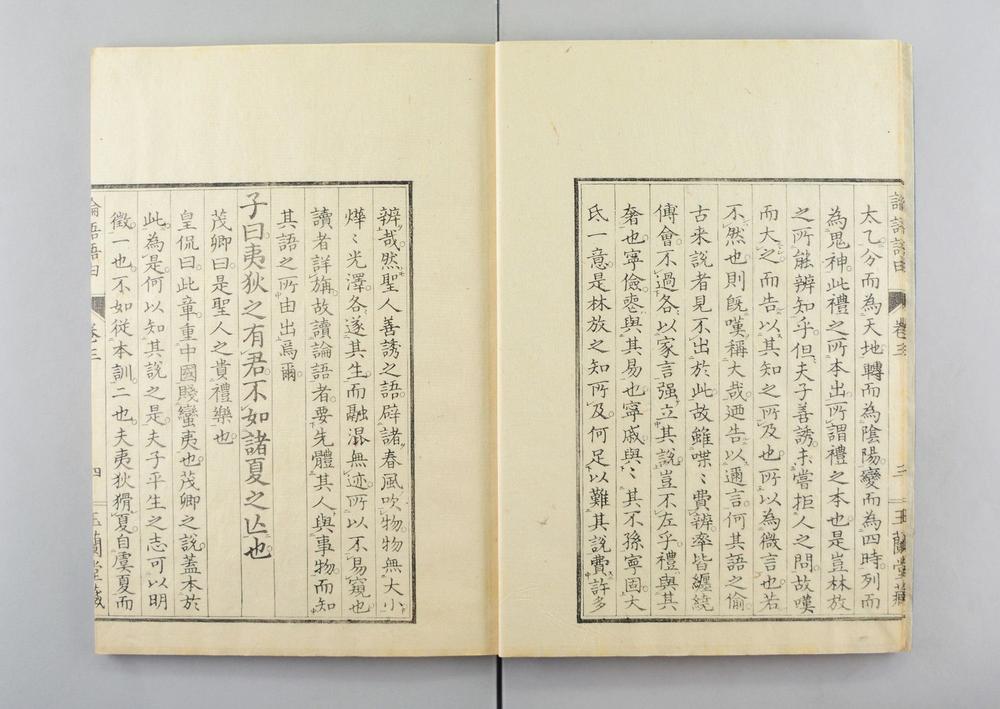 論語語由
卷三
三
玉蘭堂藏
太乙分而為天地轉而為陰陽變而為四時列而
為鬼神此禮之所本出所謂禮之本也是豈林放
之所能辨知乎但夫子善誘未嘗拒人之問故嘆
而大之而告以其知之所及也所以為微言也若
不然也則既嘆稱大哉廼告以邇言何其語之偷
古來說者見不出於此故雖喋〻費辨率皆纏繞
傅會不過各以家言强立其說豈不左乎禮與其
奢也寧儉喪與其易也寧戚與〻其不孫寧固大
氐一意是林放之知所及何足以難其說費許多
辨哉然聖人善誘之語辟諸春風吹物物無大小
燁〻光澤各遂其生而融混無迹所以不易窺也
讀者詳旃故讀論語者要先體其人與事物而知
其語之所由出焉爾
子曰夷狄之有君不如諸夏之亾也
茂卿曰是聖人之貴禮樂也
皇侃曰此章重中國賤蠻夷也茂卿之說蓋本於
此為是何以知其說之是夫子平生之志可以明
徵一也不如從本訓二也夫夷狄猾夏自虞夏而
論語語由
卷三
四
玉蘭堂藏